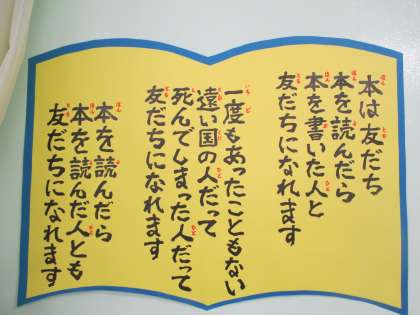 本は友だち
本を読んだら
本を書いた人と
友だちになれます
一度もあったこともない
遠い国の人だって
死んでしまった人だって
友だちになれます
本を読んだら
本を読んだ人とも
友だちになれます